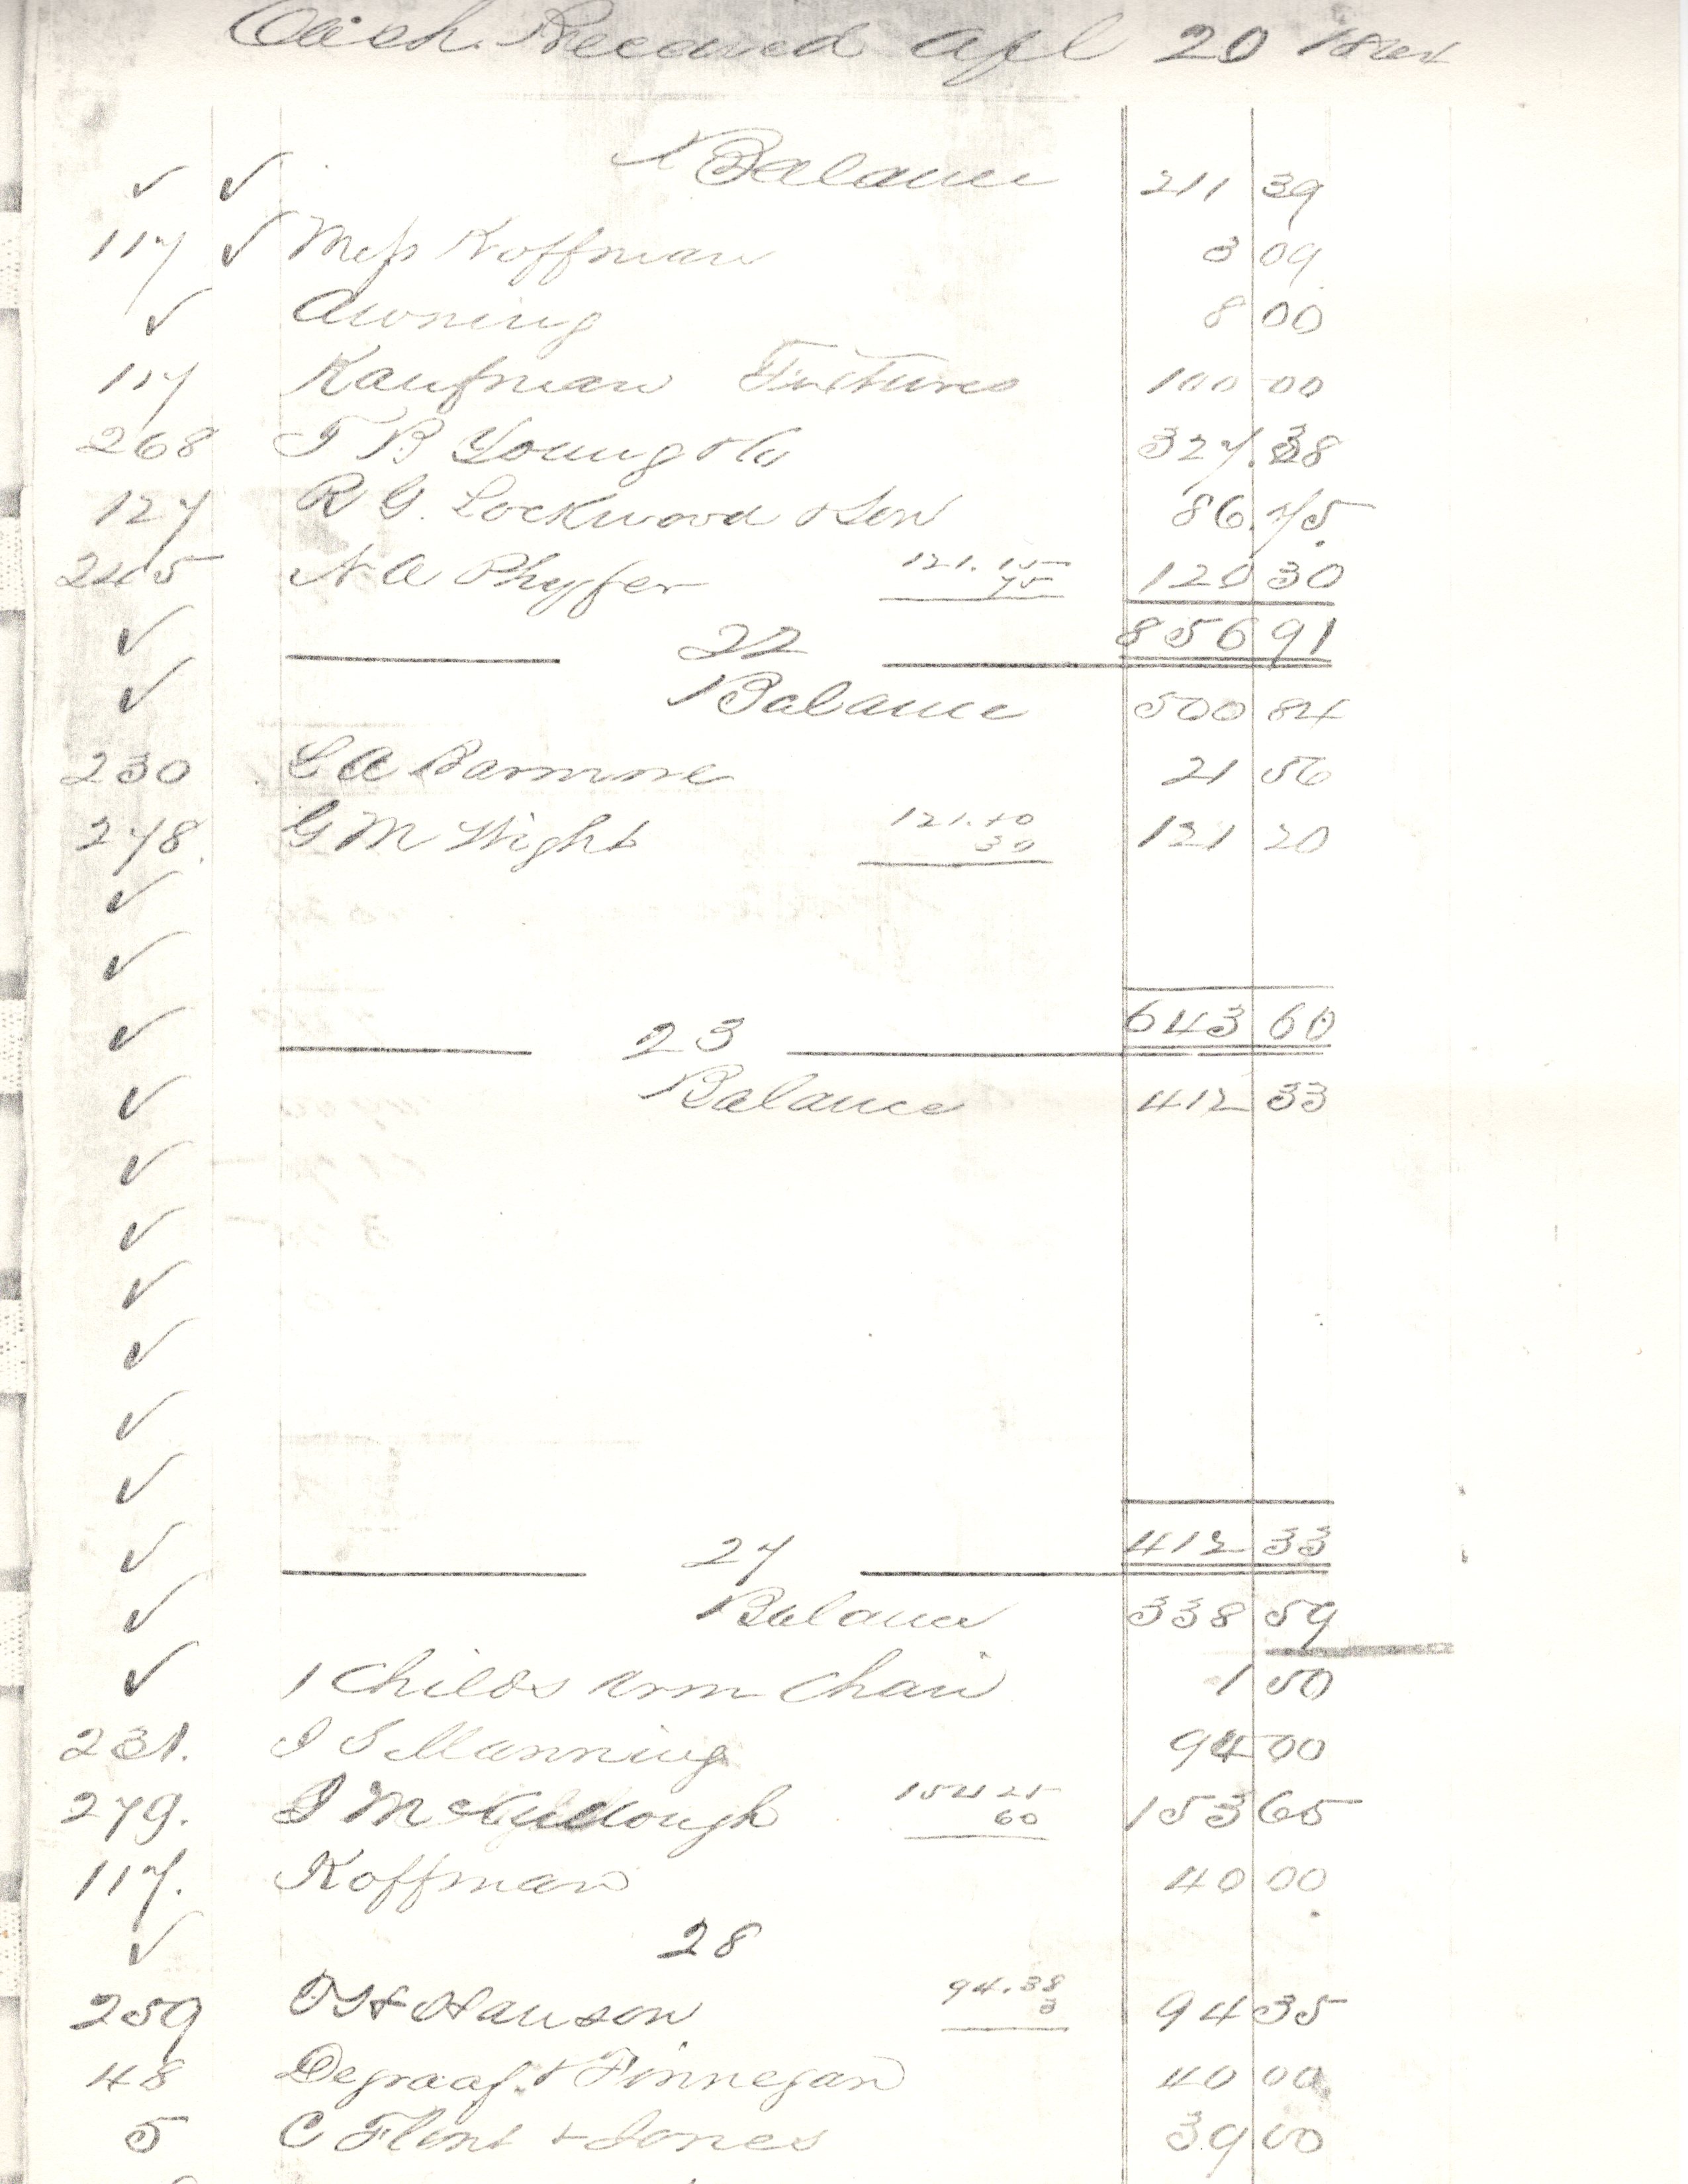 Cash Received Apl 20
✓ ✓ Balance 211 39
117 ✓ Mess Koffman 3 09
✓ Awning 8 00
117 Kaufman Fixtures 100 00
268 T B Young & Co 327.38
127 R G. Lockwood & Son 86.75
245 N A Phyfer 121.15 120 30
75
✓ 22 856 91
✓ Balance 500 84
230 L A Barmore 21 56
278. G M Wight 121.50 121 20
30
✓
✓
✓ 23 643 60
✓ Balance 412 33
✓
✓
✓
✓
✓
✓
✓ 27 412 33
✓ Balance 338 59
✓ 1 Childs Arm Chair 1 50
231. I S Manning 94 00
279. J McKullough 154 25 153 65
60
117. Koffman 40 00
✓ 28
259 O H Hanson 94.38 94 35
3
48 Degraaf & Finnegan 40 00
5 C Flint & Jones 39 00